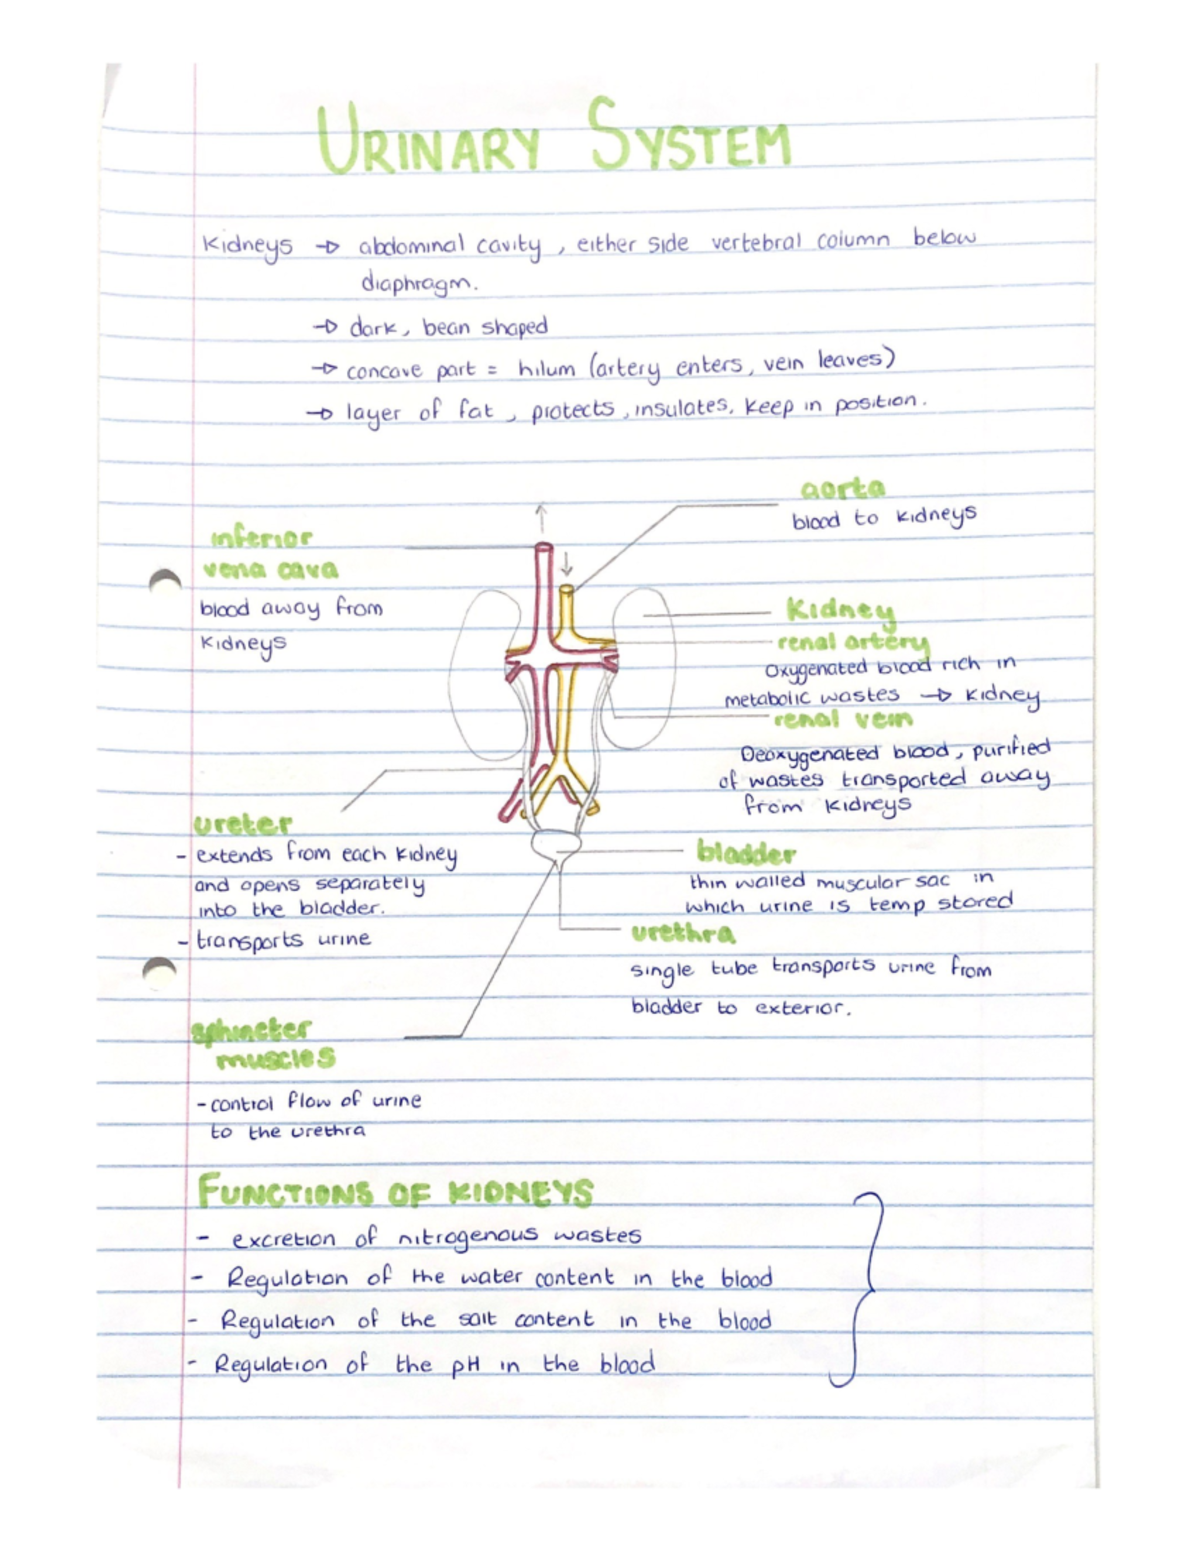 URINARY SYSTEM
Kidneys → abdominal cavity, either side vertebral column below
diaphragm.
→ dark, bean shaped
→ concave part = hilum (artery enters, vein leaves)
→ layer of fat, protects, insulates, keep in position.
aorta
blood to kidneys
inferior
vena cava
blood away from
kidneys
Kidney
renal artery
Oxygenated blood rich in
metabolic wastes → kidney
renal vein
Deoxygenated blood, purified
of wastes transported away
from kidneys
ureter
- extends from each kidney
and opens separately
into the bladder.
- transports urine
bladder
thin walled muscular sac in
which urine is temp stored
urethra
single tube transports urine from
bladder to exterior.
sphincter
muscles
- control flow of urine
to the urethra
FUNCTIONS OF KIDNEYS
- excretion of nitrogenous wastes
- Regulation of the water content in the blood
- Regulation of the salt content in the blood
- Regulation of the pH in the blood